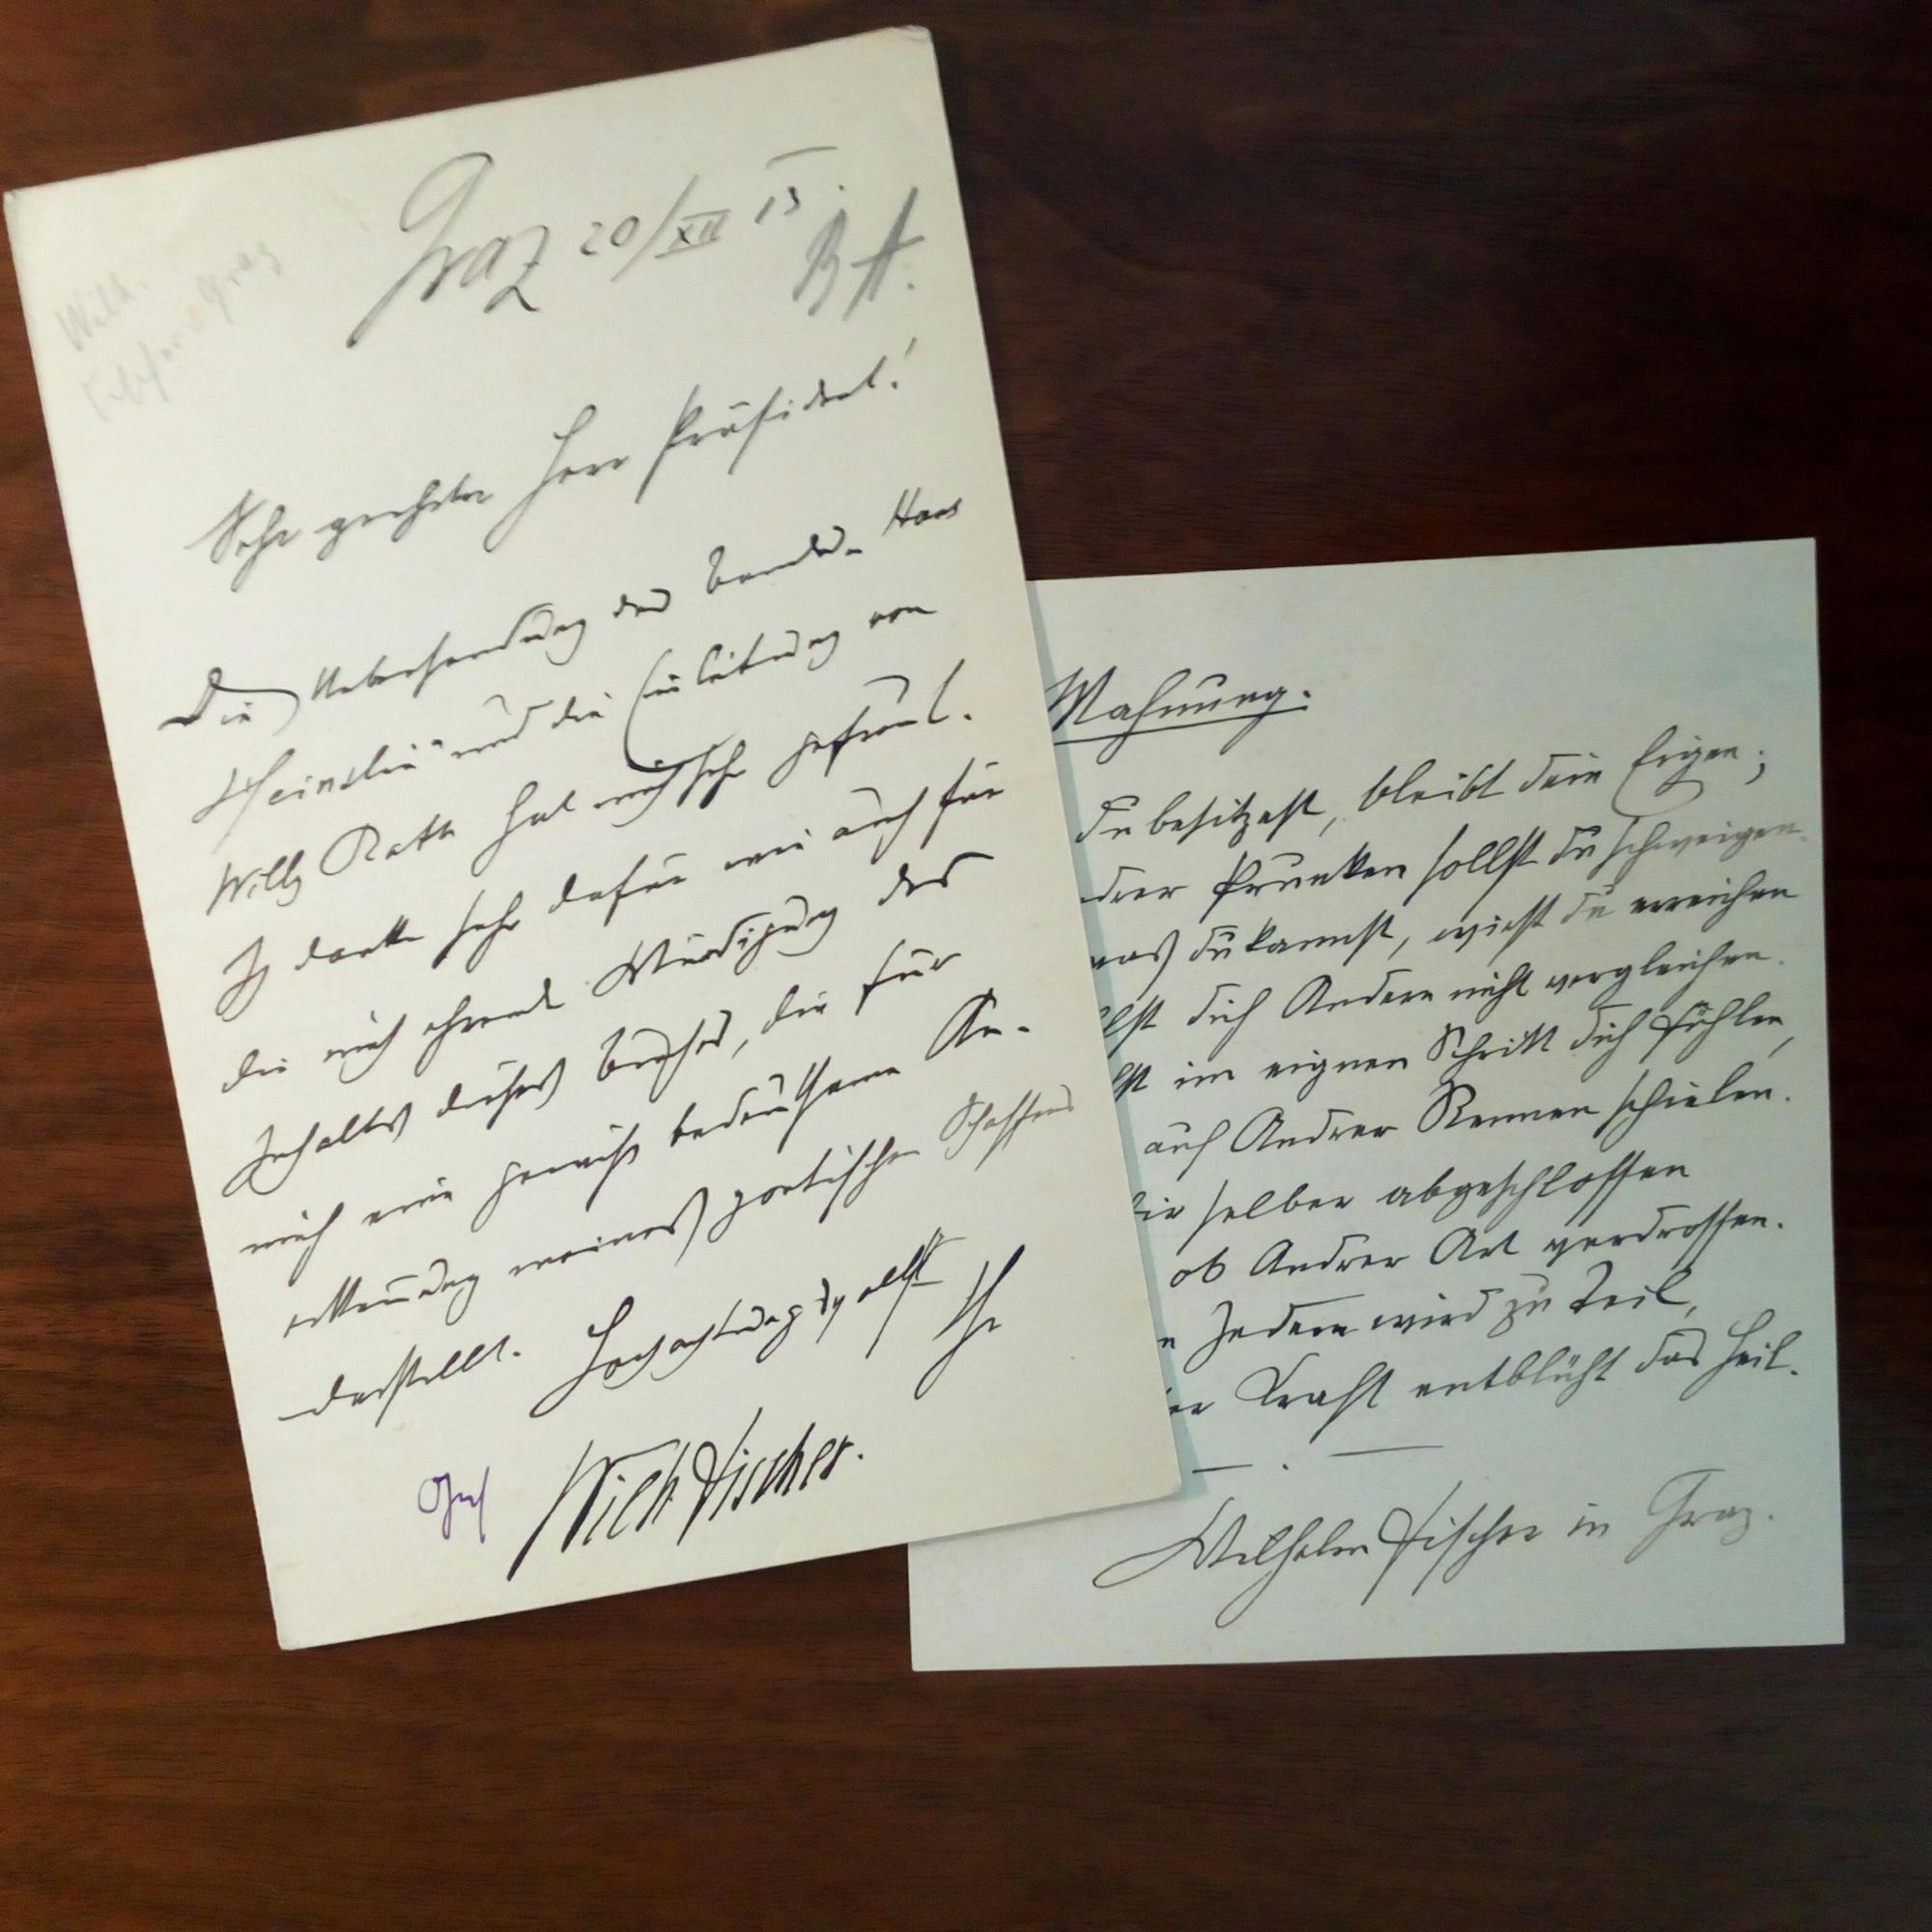 Graz 20/XII 13.
B. A.
Wilh.
Fischer Graz
Sehr geehrter Herr Präsident!
Die Uebersendung des Bandes Hans
Heinzlin" und die Einleitung von
Willy Rath hat mich sehr gefreut.
Ich danke sehr dafür wie auch für
die mich ehrende Würdigung des
Inhaltes dieses Buches, die für
mich eine gewiß bedeutsame An-
erkennung meines poetischen Schaffens
darstellt. Hochachtungsvollst
Ihr
Wilh Fischer.
Mahnung.
du besitzest, bleibt dein Eigen;
drer Prunken sollst du schweigen.
was du kannst, wirst du erreichen
llst dich Andern nicht vergleichen.
llst im eignen Schritt dich fühlen,
auf Andrer Rennen schielen.
dir selber abgeschlossen
ob Andrer Art verdrossen.
n Jedem wird zu Teil,
er Kraft entblüht das Heil.
Wilhelm Fischer in Graz.